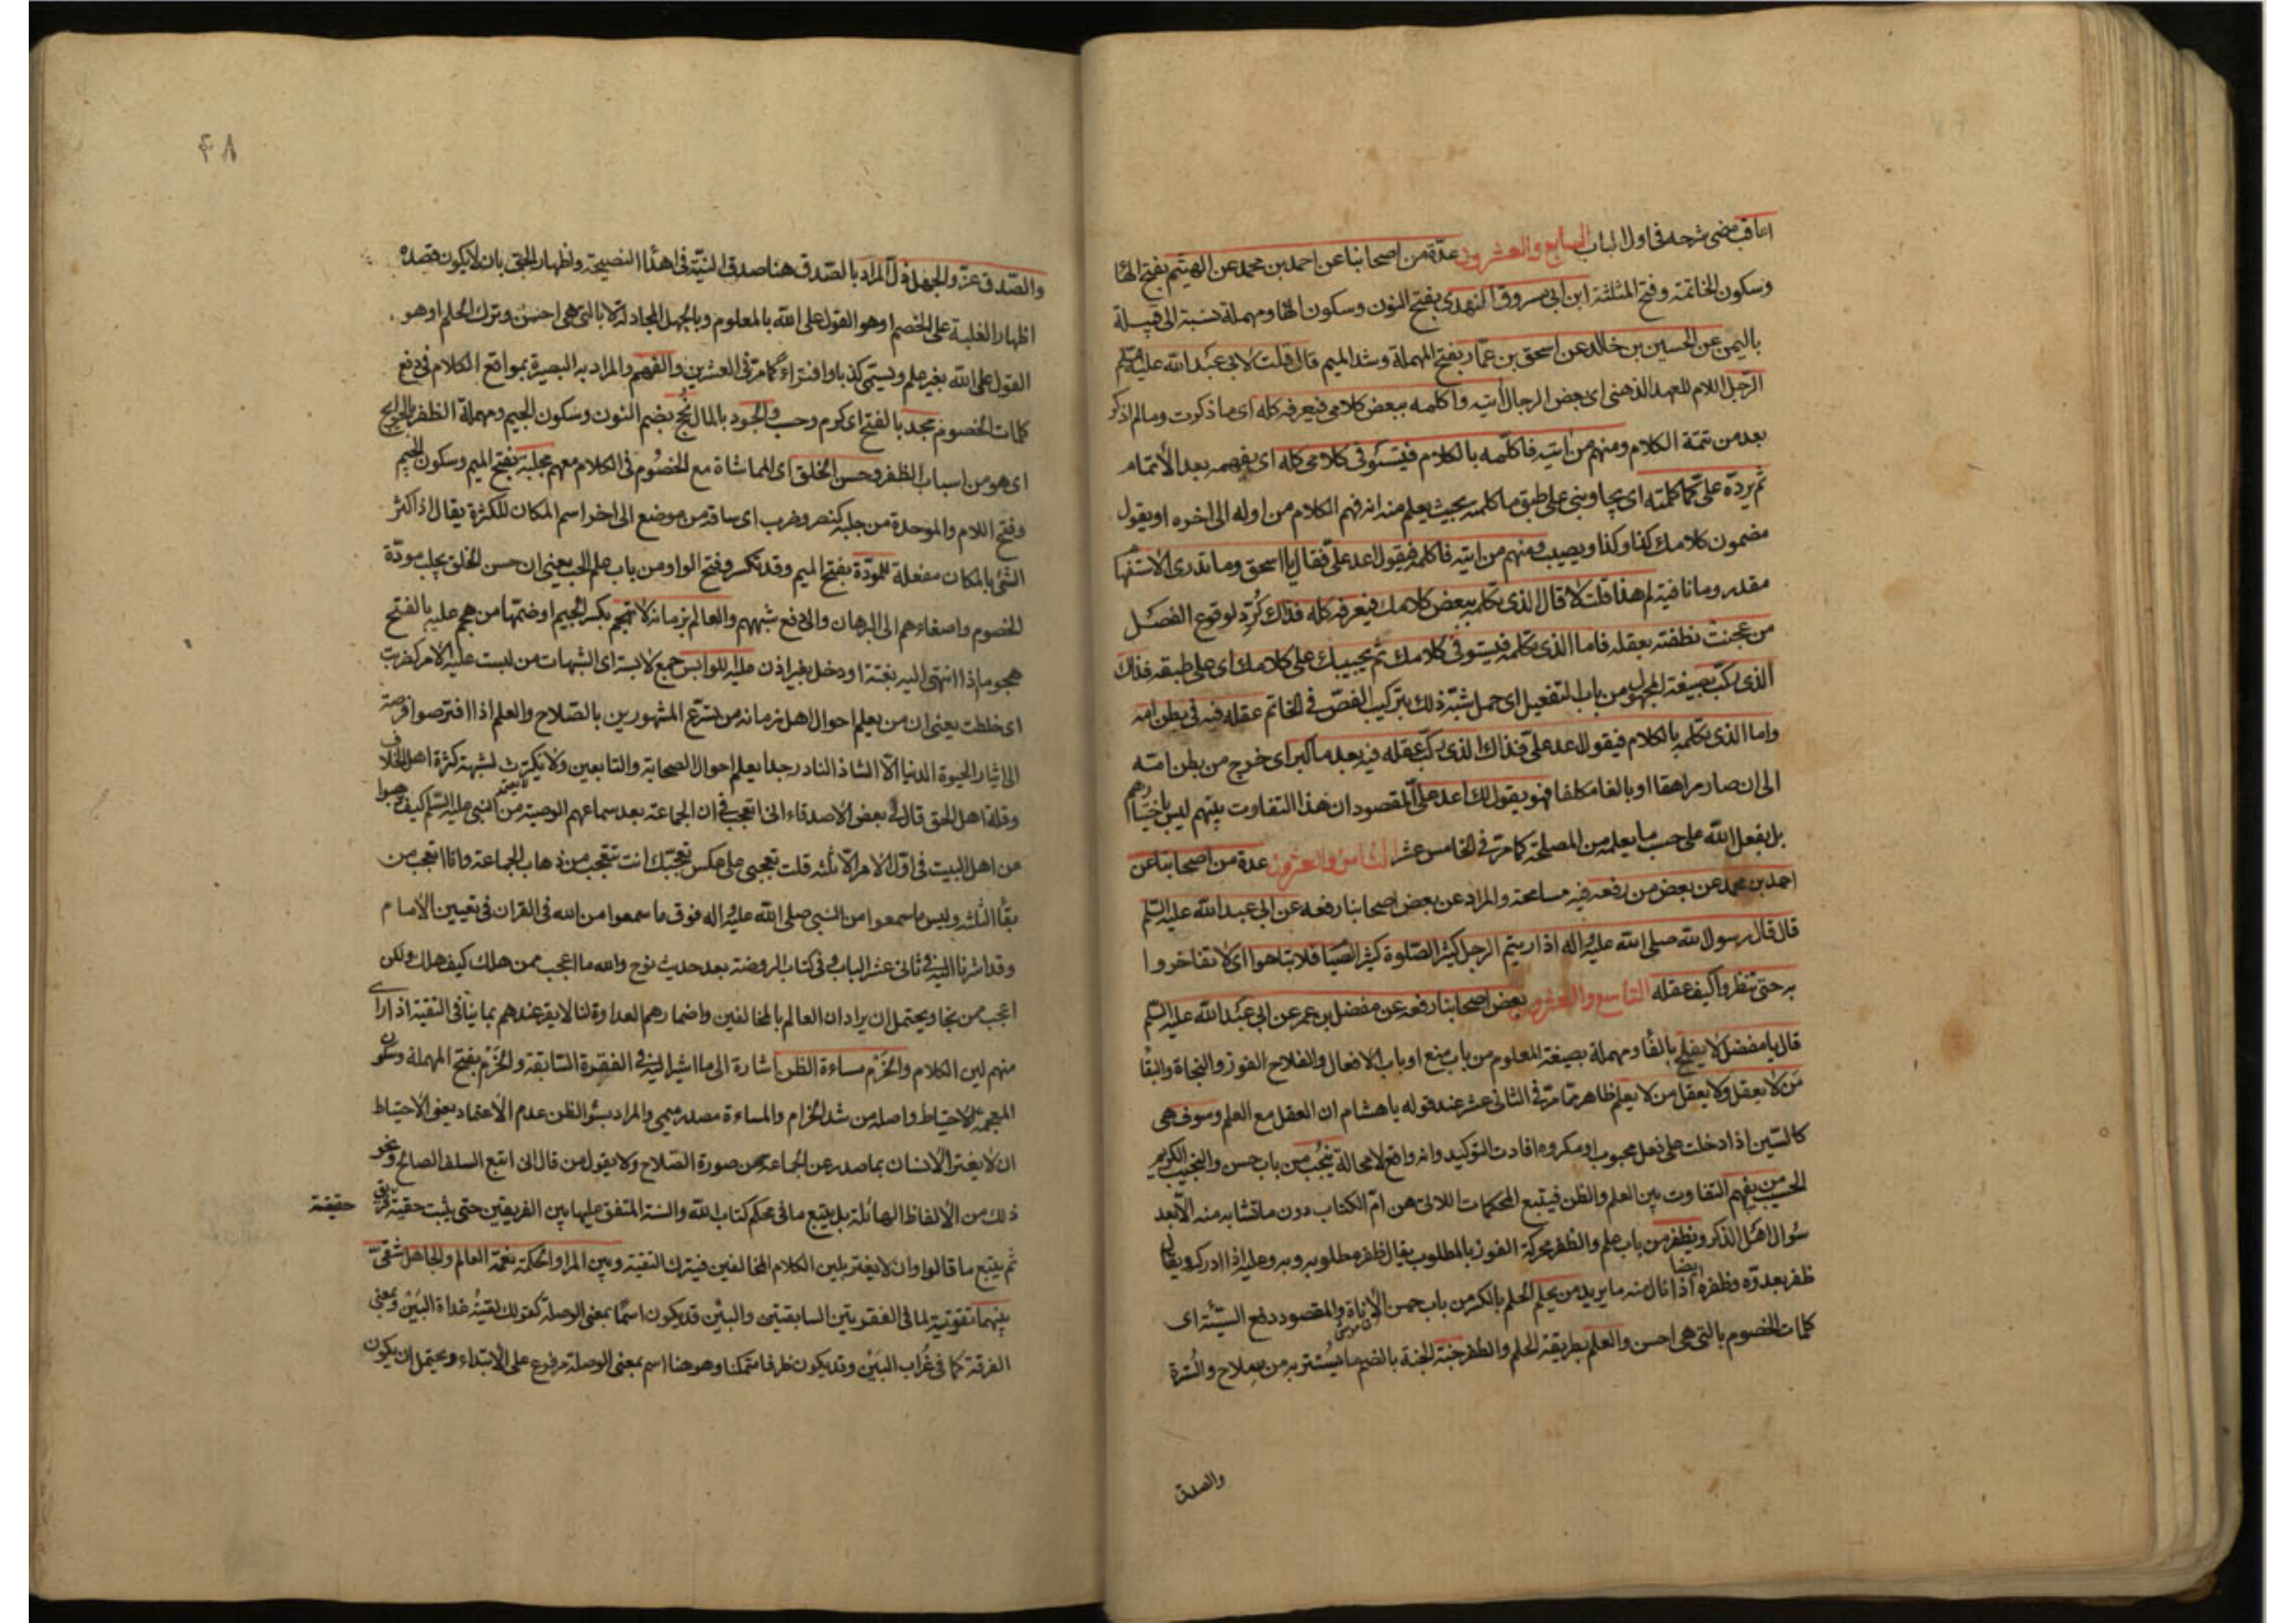 اعاقب مضى شرحه فى اول الباب السابع والعشرون عدّة من اصحابنا عن احمد بن محمد عن الهيثم بفتح الهاء
وسكون الخاتمة وفتح المثلثة ابن ابى مسروق النهدى بفتح النون وسكون الهاء ومهملة نسبة الى قبيلة
باليمن عن الحسين بن خالد عن اسحق بن عمّار بفتح المهملة وشد الميم قال قلت لابى عبد الله عليه السلم
الرّجل اللام للعهد الذهنى اى بعض الرجال أتيه واكلمه ببعض كلامى فيعرفه كله اى ما ذكرت وما لم اذكر
بعد من تتمة الكلام ومنهم من اتيه فاكلّمه بالكلام فيستوفى كلامى كله اى يفهمه بعد الاتمام
ثم يردّه علىّ كما كلمته اى يجاوبنى على طبق ما كلمته بحيث يعلم منه انه فهم الكلام من اوله الى اخره او يقول
مضمون كلامك كذا وكذا ويصيب ومنهم من اتيه فاكلمه فيقول اعد علىّ فقال يا اسحق وما تدرى الاستفهام
مقدر وما نافية لم هذا قلت لا قال الذى تكلمه ببعض كلامك فيعرفه كله فذاك كرّر لوقوع الفصل
من عجنت نطفته بعقله فاما الذى تكلمه فيستوفى كلامك ثم يجيبك على كلامك اى على طبقه فذاك
الذى ركّب بصيغة المجهول من باب التفعيل اى حمل شبّه ذلك بتركيب الفصّ فى الخاتم عقله فيه فى بطن امه
واما الذى تكلمه بالكلام فيقول اعد علىّ فذاك الذى ركّب عقله فيه بعد ما كبر اى خرج من بطن امّه
الى ان صار مراهقا او بالغا مكلفا فهو يقول لك اعد علىّ المقصود ان هذا التفاوت بينهم ليس باختيارهم
بل بفعل الله على حسب ما يعلمه من المصلحة كما مرّ فى الخامس عشر الثامن والعشرون عدة من اصحابنا عن
احمد بن محمد عن بعض من رفعه فيه مسامحة والمراد عن بعض اصحابنا رفعه عن ابى عبد الله عليه السلم
قال قال رسول الله صلى الله عليه واله اذا رايتم الرجل كثير الصّلوة كثير الصّيام فلا تباهوا اى لا تفاخروا
به حتى تنظروا كيف عقله التاسع والعشرون بعض اصحابنا رفعه عن مفضل بن عمر عن ابى عبد الله عليه السلم
قال يا مفضل لا يفلح بالفاء ومهملة بصيغة المعلوم من باب منع او باب الافعال والفلاح الفوز والنجاة والبقاء
مَن لا يعقل ولا يعقل من لا يعلم ظاهر مما مرّ فى الثانى عشر عند قوله يا هشام ان العقل مع العلم وسوف هى
كالسّين اذا دخلت على فعل محبوب او مكروه افادت التوكيد وانه واقع لا محالة ينجُب من باب حسن والنجيب الكريم
الحسيب من يفهم التفاوت بين العلم والظن فيتبع المحكمات اللاتى هن امّ الكتاب دون ما تشابه منه الّا بعد
سُوال اهل الذكر ويظفر من باب علم والظفر محركة الفوز بالمطلوب يقال ظفر مطلوبه وبه وعليه اذا ادركه ويقال
ظفر بعدوّه وظفره ايضا اذا نال منه ما يريد من يحلم الحلم بالكسر من باب حسن الاناة والمقصود دفع السيّئة اى
كلمات الخصوم بالتى هى احسن والعلم بطريقة الحلم والظفر جنة الجنة بالضم ما يُستتر به من سلاح والسُترة
والصدق
۴۸
والصّدق عزّ والجهل ذلّ المراد بالصّدق هنا صدق النيّة فى اهداء النصيحة واظهار الحق بان لا يكون قصده
اظهار الغلبة على الخصم او هو القول على الله بالمعلوم وبالجهل المجادلة لا بالتى هى احسن وترك الحلم او هو
القول على الله بغير علم ويسمّى كذبا وافتراءً كما مرّ فى العشرين والفهم والمراد به البصيرة بمواقع الكلام فى دفع
كلمات الخصوم مجد بالفتح اى كرم وحسب والجود بالمال نُجح بضم النون وسكون الجيم ومهملة الظفر بالحوائج
اى هو من اسباب الظفر وحسن الخلق اى المماشاة مع الخصُوم فى الكلام معهم مجلبة بفتح الميم وسكون الجيم
وفتح اللام والموحدة من جلبه كنصر وضرب اى ساقه من موضع الى اخر اسم المكان للكثرة يقال اذا كثر
الشئ بالمكان مفعلة للمودّة بفتح الميم وقد تكسر وفتح الواو من باب علم الحب يعنى ان حسن الخلق يجلب مودّة
الخصوم واصغاءهم الى البرهان والى دفع شبههم والعالم بزمانه لا تهجم بكسر الجيم او ضمّها من هجم عليه بالفتح
هجوما اذا انتهى اليه بغتة او دخل بغير اذن عليه اللوابس جمع لابسة اى الشبهات من لبست عليه الامر كضرب
اى خلطت يعنى ان من يعلم احوال اهل زمانه من تسرّع المشهورين بالصّلاح والعلم اذا افترصوا فرصة
الى ايثار الحيوة الدنيا الّا الشاذ النادر جدا يعلم احوال الصحابة والتابعين ولا يكترث لشبهة كثرة اهل الخلاف
وقلة اهل الحق قال لى بعض الاصدقاء انى اتعجب فى ان الجماعة بعد سماعهم الوصية من النبى عليه السّلم كيف ذهبوا
عن اهل البيت فى اوّل الامر الّا ثلثه قلت تعجبى على عكس تعجّبك انت تتعجب من ذهاب الجماعة وانا اتعجب من
بقاء الثلثه وليس ما سمعوا من النبى صلى الله عليه واله فوق ما سمعوا من الله فى القران فى تعيين الامام
وقد اشرنا اليه فى ثانى عشر الباب وفى كتاب الروضة بعد حديث نوح والله ما اعجب ممن هلك كيف هلك ولكن
اعجب ممن نجا ويحتمل ان يراد ان العالم بالمخالفين واضمارهم العداوة لنا لا يقر عندهم بما ينافى التقية اذا راى
منهم لين الكلام والحَزم مساءة الظن اشارة الى ما اشير اليه فى الفقرة السّابقة والحَزم بفتح المهملة وسكون
المعجمة الاحتياط واصله من شد الحزام والمساءة مصدر ميمى والمراد بسُوء الظن عدم الاعتماد يعنى الاحتياط
ان لا يغتر الانسان بما صدر عن الجماعة من صورة الصّلاح ولا يقول من قال انى اتبع السلف الصالح ونحو
ذلك من الالفاظ الهائلة بل يتبع ما فى محكم كتاب الله والسنة المتفق عليها بين الفريقين حتى يثبت حقية فريق
حقيقة
ثم يتبع ما قالوا وان لا يغتر بلين الكلام المخالفين فيترك التقية وبين المرء والحكمة نعمة العالم والجاهل شقىّ
بينهما تقوية لما فى الفقرتين السابقتين والبين قد يكون اسمًا بمعنى الوصلة كقولك لقيتُه غداة البَيْن وبمعنى
الفرقة كما فى غُراب البَيْن وقد يكون ظرفا متمكنا وهو هنا اسم بمعنى الوصلة مرفوع على الابتداء ويحتمل ان يكون